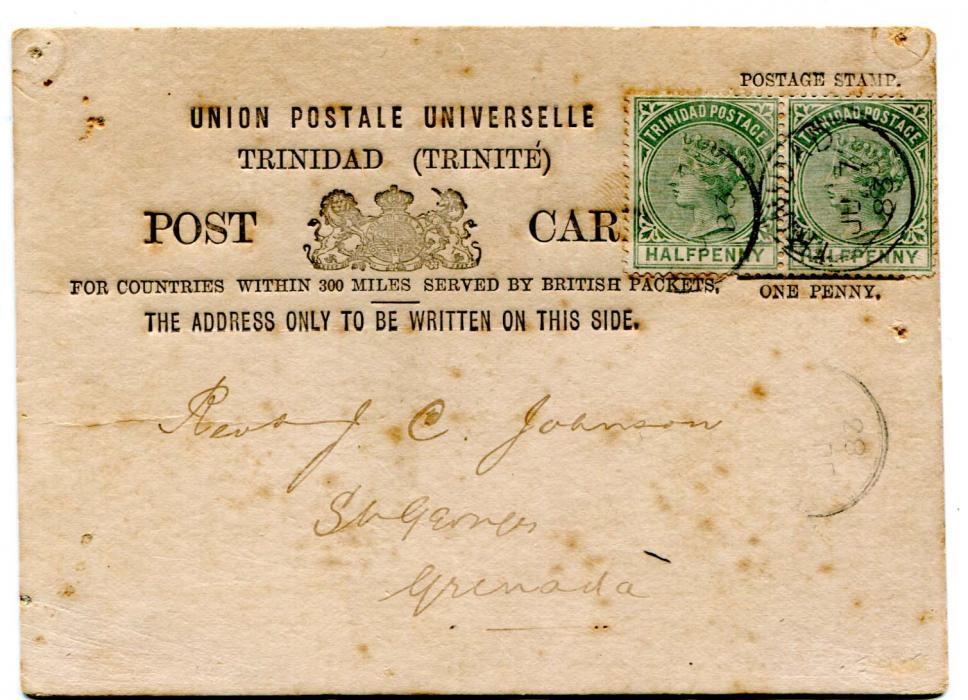 POSTAGE STAMP.
UNION POSTALE UNIVERSELLE
TRINIDAD (TRINITÉ)
POST CAR
TRINIDAD POSTAGE
HALFPENNY
TRINIDAD POSTAGE
HALFPENNY
FOR COUNTRIES WITHIN 300 MILES SERVED BY BRITISH PACKETS.
ONE PENNY.
THE ADDRESS ONLY TO BE WRITTEN ON THIS SIDE.
Revd J. C. Johnson
St Georges
Grenada